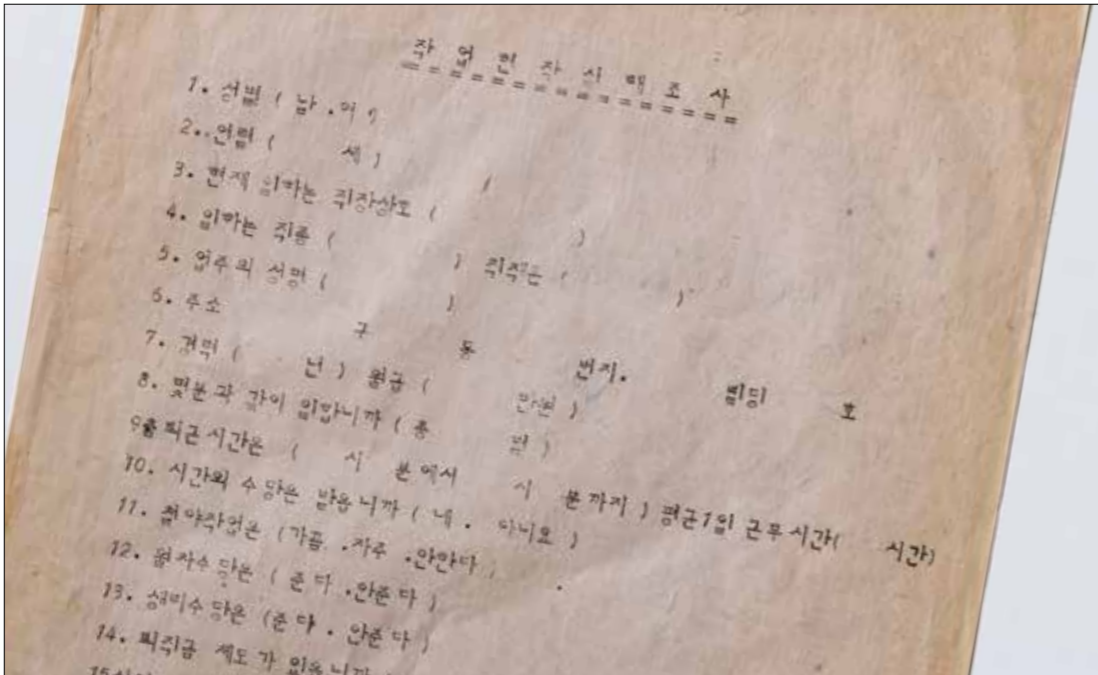 작 업 현 장 실 태 조 사
1. 성별 ( 남 . 여 )
2. 연령 ( 세 )
3. 현재 일하는 직장상호 ( )
4. 일하는 직종 ( ) 직책은 ( )
5. 업주의 성명 ( )
6. 주소 구 동 번지. 빌딩 호
7. 경력 ( 년 ) 월급 ( 만원 )
8. 몇분과 같이 일합니까 ( 총 명 )
9출퇴근시간은 ( 시 분에서 시 분까지 ) 평균1일 근무시간( 시간)
10. 시간외 수당은 받읍니까 ( 네 . 아니요 )
11. 철야작업은 (가끔 .자주 .안한다 )
12. 월차수당은 ( 준다 .안준다 )
13. 생리수당은 (준다 . 안준다 )
14. 퇴직금 제도가 있읍니까